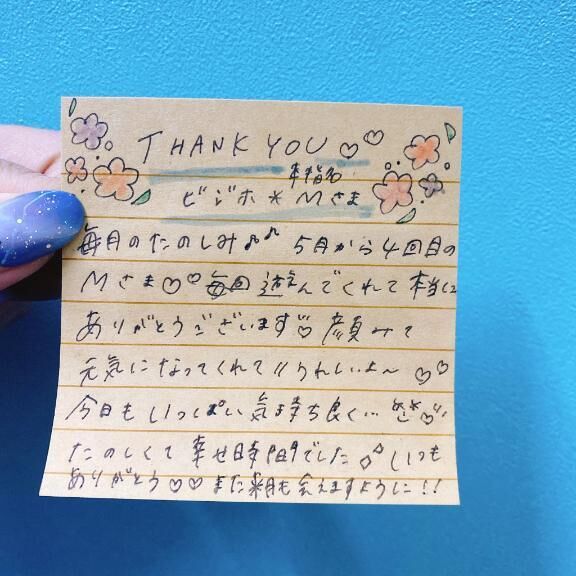 THANK YOU♡♡
本指名
ビジホ*Mさま
毎月のたのしみ♪♪ 5月から4回目の
Mさま♡♡毎回遊んでくれて本当に
ありがとうございます♡顔みて
元気になってくれて〃うれしいよ〜♡♡
今日もいっぱい気持ち良く…
たのしくて幸せ時間でした いつも
ありがとう♡♡また来月も会えますように!!